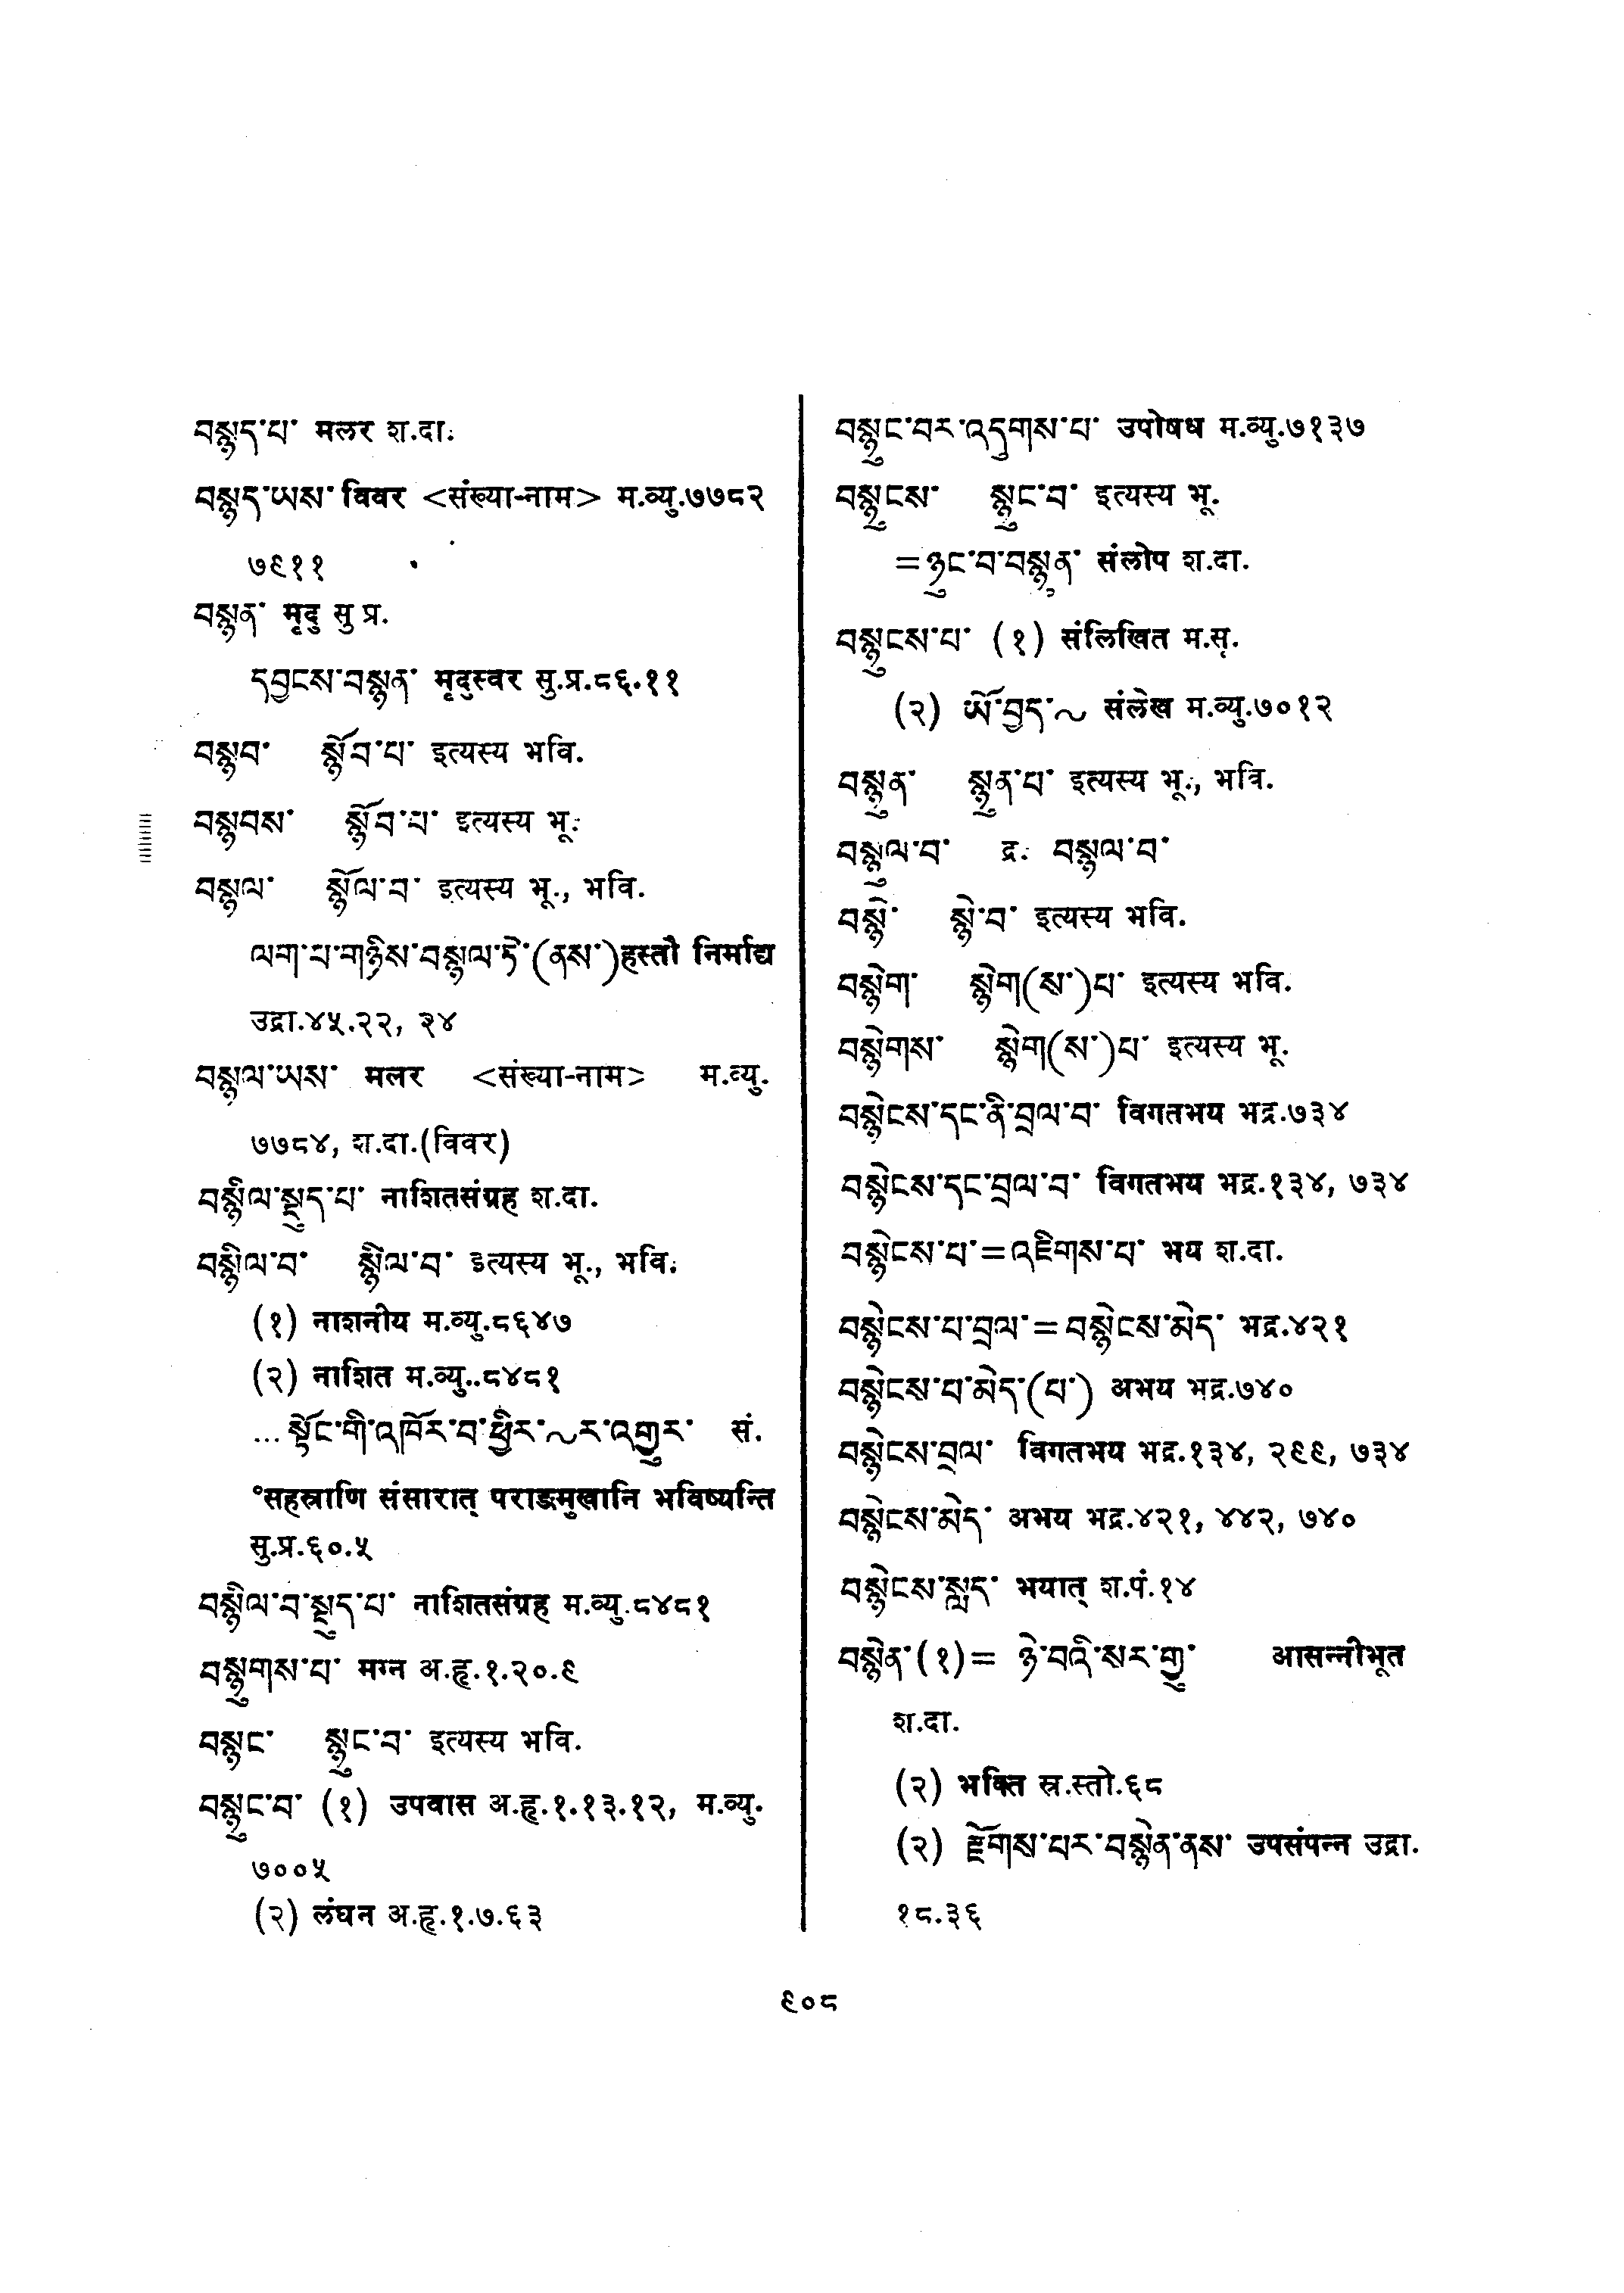 བསྙད་པ་ मलर श.दा.
བསྙད་ཡས་ विवर <संख्या-नाम> म.व्यु.७७८२
७९११
བསྙན་ मृदु सु प्र.
དབྱངས་བསྙན་ मृदुस्वर सु.प्र.८६.११
བསྙབ་ སྙོབ་པ་ इत्यस्य भवि.
བསྙབས་ སྙོབ་པ་ इत्यस्य भू.
བསྙལ་ སྙོལ་བ་ इत्यस्य भू., भवि.
ལག་པ་གཉིས་བསྙལ་ཏེ་(ནས་)हस्तौ निर्माद्य
उद्रा.४५.२२, २४
བསྙལ་ཡས་ मलर <संख्या-नाम> म.व्यु.
७७८४, श.दा.(विवर)
བསྙིལ་སྡུད་པ་ नाशितसंग्रह श.दा.
བསྙིལ་བ་ སྙིལ་བ་ इत्यस्य भू., भवि.
(१) नाशनीय म.व्यु.८६४७
(२) नाशित म.व्यु..८४८१
... སྟོང་གི་འཁོར་བ་ཕྱིར་~ར་འགྱུར་ सं.
°सहस्राणि संसारात् पराङमुखानि भविष्यन्ति
सु.प्र.६०.५
བསྙིལ་བ་སྡུད་པ་ नाशितसंग्रह म.व्यु.८४८१
བསྙུགས་པ་ मग्न अ.हृ.१.२०.९
བསྙང་ སྙུང་བ་ इत्यस्य भवि.
བསྙུང་བ་ (१) उपवास अ.हृ.१.१३.१२, म.व्यु.
७००५
(२) लंघन अ.हृ.१.७.६३
བསྙུང་བར་འདུགས་པ་ उपोषध म.व्यु.७१३७
བསྙུངས་ སྙུང་བ་ इत्यस्य भू.
=ཉུང་བ་བསྙུན་ संलोप श.दा.
བསྙུངས་པ་ (१) संलिखित म.सू.
(२) ཡོ་བྱད་~ संलेख म.व्यु.७०१२
བསྙུན་ སྙུན་པ་ इत्यस्य भू., भवि.
བསྙུལ་བ་ द्र. བསྙལ་བ་
བསྙེ་ སྙེ་བ་ इत्यस्य भवि.
བསྙེག་ སྙེག(ས་)པ་ इत्यस्य भवि.
བསྙེགས་ སྙེག(ས་)པ་ इत्यस्य भू.
བསྙེངས་དང་ནི་བྲལ་བ་ विगतभय भद्र.७३४
བསྙེངས་དང་བྲལ་བ་ विगतभय भद्र.१३४, ७३४
བསྙེངས་པ་=འཇིགས་པ་ भय श.दा.
བསྙེངས་པ་བྲལ་=བསྙེངས་མེད་ भद्र.४२१
བསྙེངས་པ་མེད་(པ་) अभय भद्र.७४०
བསྙེངས་བྲལ་ विगतभय भद्र.१३४, २९९, ७३४
བསྙེངས་མེད་ अभय भद्र.४२१, ४४२, ७४०
བསྙེངས་སླད་ भयात् श.पं.१४
བསྙེན་(१)= ཉེ་བའི་སར་གྱུ་ आसन्नीभूत
श.दा.
(२) भक्ति स्र.स्तो.६८
(२) རྫོགས་པར་བསྙེན་ནས་ उपसंपन्न उद्रा.
१८.३६
९०८